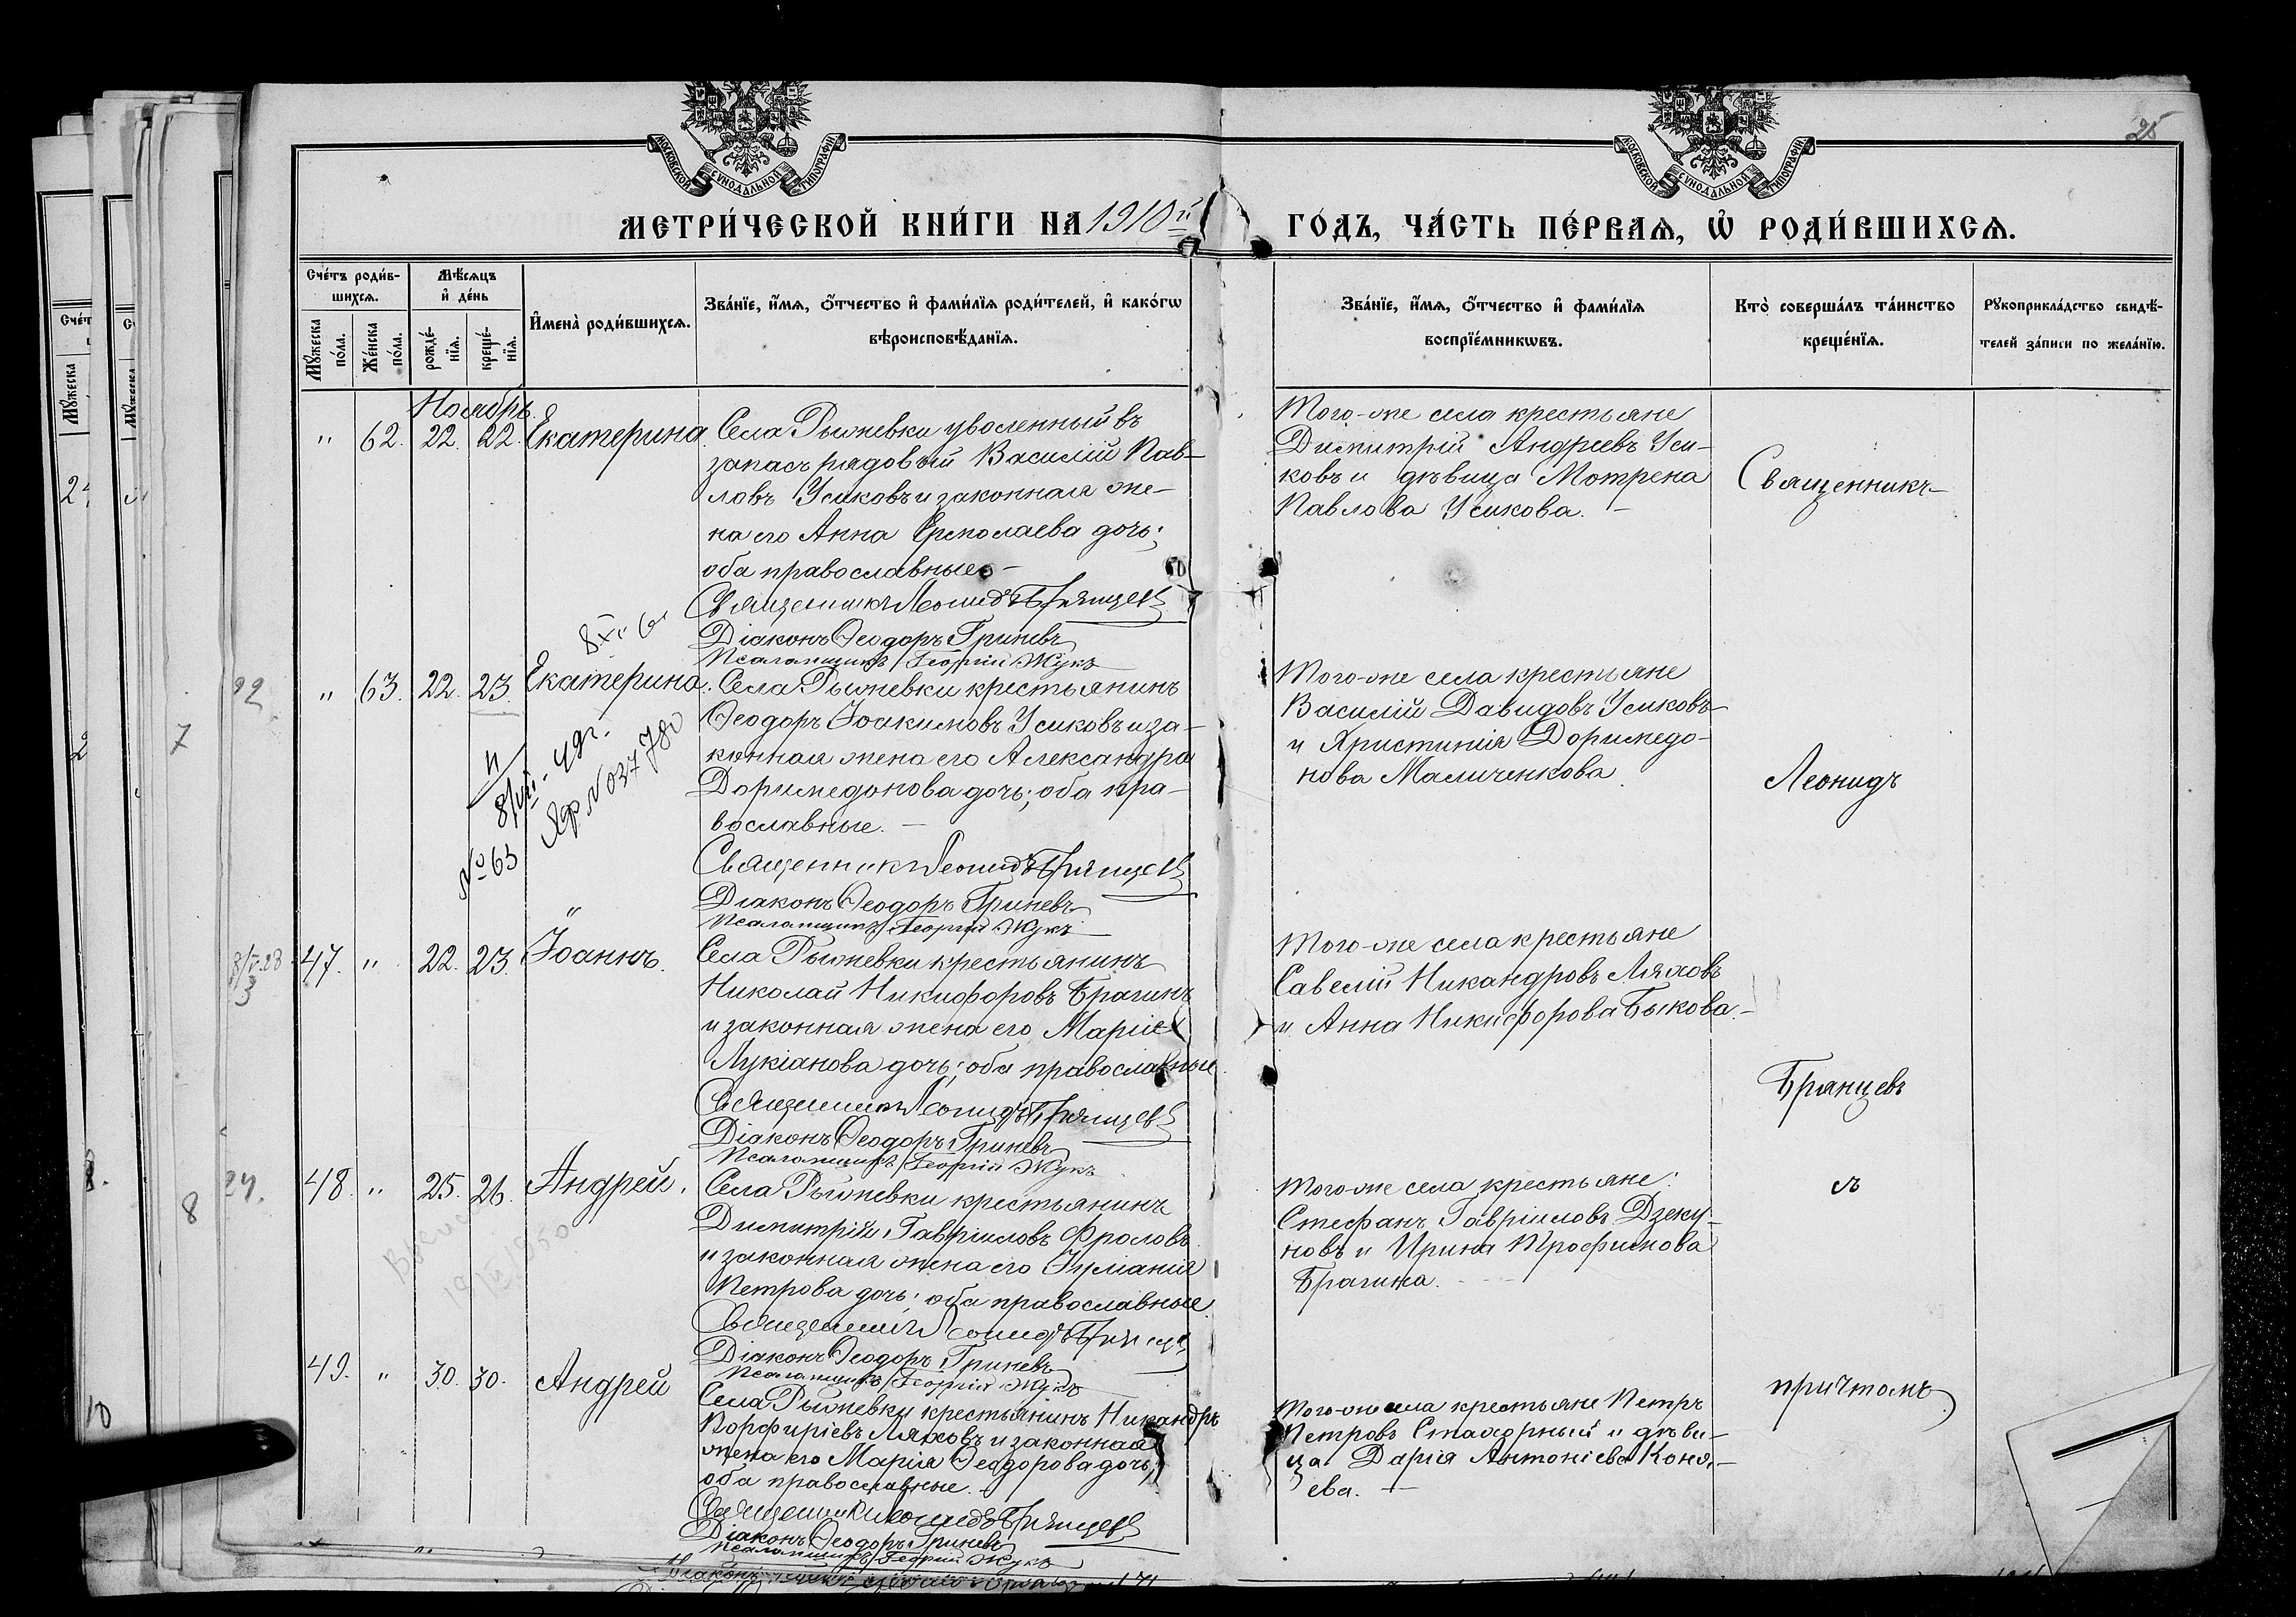 25
МОСКОВСКОЙ СУНОДАЛЬНОЙ ТИПОГРАФІИ
МОСКОВСКОЙ СУНОДАЛЬНОЙ ТИПОГРАФІИ
МЕТРИ́ЧЕСКОЙ КНИ́ГИ НА 1910й ГО́ДЪ, ЧА́СТЬ ПЕ́РВАѦ, Ѡ҆ РОДИ́ВШИХСѦ.
Сче́тъ роди́в-
шихсѧ.
Мѣ́сѧцъ
и҆ де́нь
Мꙋ́жеска по́ла.
Же́нска по́ла.
рожде́-нїѧ.
креще́-нїѧ.
И҆мена̀ роди́вшихсѧ.
Зва́нїе, и҆́мѧ, ѻ҆́тчество и҆ фами́лїѧ роди́телей, и҆ како́гѡ
вѣроисповѣ́данїѧ.
Зва́нїе, и҆́мѧ, ѻ҆́тчество и҆ фами́лїѧ
воспрїе́мникѡвъ.
Кто̀ соверша́лъ та́инство
креще́нїѧ.
Рꙋкоприкла́дство свидѣ́-
телей за́писи по жела́нїю.
Ноябрь.
" 62. 22. 22. Екатерина.
Села Рыжевки уволенный въ
запасъ рядовой Василій Пав-
ловъ Усиковъ и законная же-
на его Анна Ермолаева дочь;
оба православные. –
Священникъ Леонидъ Брянцевъ
Діаконъ Ѳеодоръ Гриневъ
Псаломщикъ Георгій Жукъ
Того-же села крестьяне
Димитрій Андреевъ Уси-
ковъ и дѣвица Мотрена
Павлова Усикова. –
Священникъ
" 63. 22. 23. Екатерина.
Села Рыжевки крестьянинъ
Ѳеодоръ Іоакимовъ Усиковъ и за-
конная жена его Александра
Доримедонова дочь; оба пра-
вославные. –
Священникъ Леонидъ Брянцевъ
Діаконъ Ѳеодоръ Гриневъ
Псаломщикъ Георгій Жукъ
№ 63
Того-же села крестьяне
Василій Давидовъ Усиковъ
и Христинія Доримедо-
нова Маличенкова.
Леонидъ
47. " 22. 23. Іоаннъ.
Села Рыжевки крестьянинъ
Николай Никифоровъ Брагинъ
и законная жена его Марія
Лукіанова дочь; оба православные
Священникъ Леонидъ Брянцевъ
Діаконъ Ѳеодоръ Гриневъ
Псаломщикъ Георгій Жукъ
Того-же села крестьяне
Савелій Никандровъ Ляховъ
и Анна Никифорова Быкова. –
Брянцевъ
48. " 25. 26. Андрей.
Села Рыжевки крестьянинъ
Димитрій Гавріиловъ Фроловъ
и законная жена его Іуліанія
Петрова дочь; оба православные.
Священникъ Леонидъ Брянцевъ
Діаконъ Ѳеодоръ Гриневъ
Псаломщикъ Георгій Жукъ
Того-же села крестьяне:
Стефанъ Гавріиловъ Дзеку-
новъ и Ирина Трофимова
Брагина.
съ
49. " 30. 30. Андрей
Села Рыжевки крестьянинъ Никандръ
Порфиріевъ Ляховъ и законная
жена его Марія Ѳеодорова дочь;
оба православные. –
Священникъ Леонидъ Брянцевъ
Діаконъ Ѳеодоръ Гриневъ
Псаломщикъ Георгій Жукъ
Того-же села крестьяне Петръ
Петровъ и дѣви-
ца Дарія Антоніева Коня-
ева. –
причтомъ